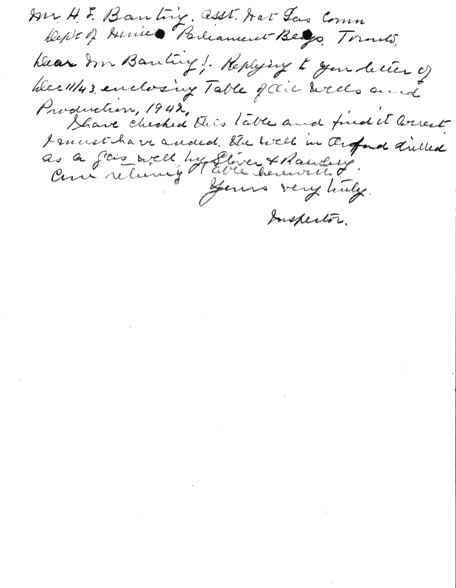 Mr H. F. Banting. Asst. Nat Gas Comm
Dept of Mines Parliament Bldgs, Toronto,
Dear Mr Banting! Replying to your letter of
Dec 11/43 enclosing Table of Oil Wells and
Production, 1942,
I have checked this table and find it Correct
I must have added the well in Oxford drilled
as a gas well by &
am returning Table herewith
Yours very truly.
Inspector.